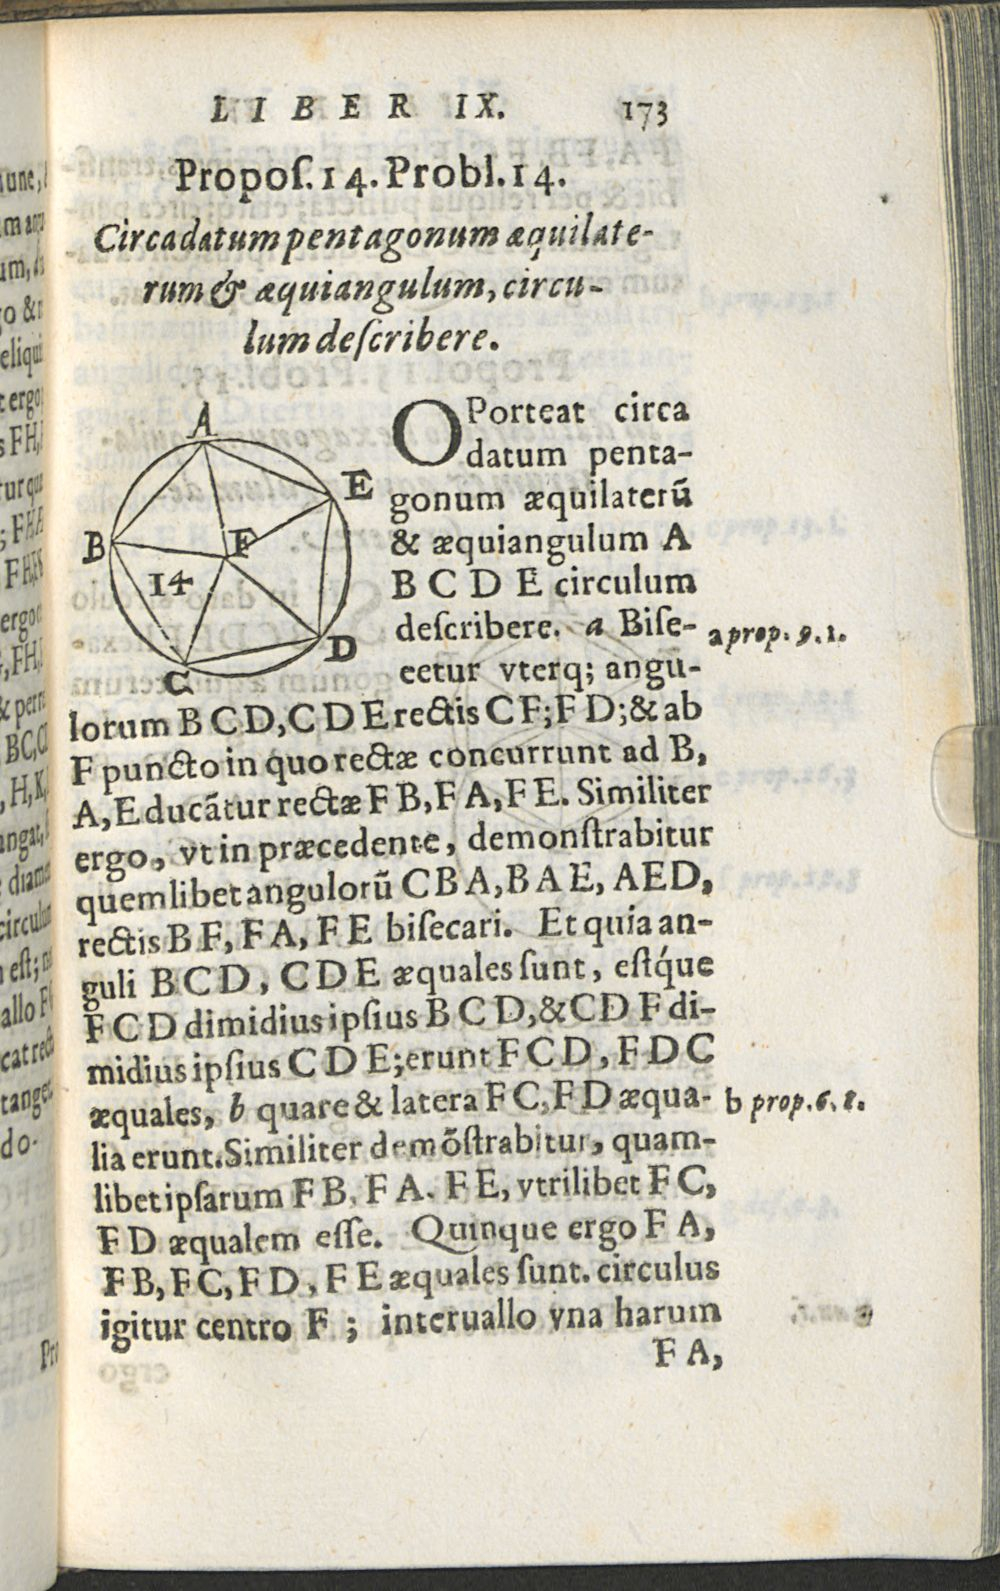 LIBER IX. 173
Propoſ. 14. Probl. 14.
Circa datum pentagonum æquilate-
rum & æquiangulum, circu-
lum deſcribere.
A
E
B
F
14
D
C
OPorteat circa
datum penta-
gonum æquilaterū
& æquiangulum A
B C D E circulum
deſcribere. a Biſe- a prop. 9.1.
cetur vterq; angū-
lorum B C D, C D E rectis C F; F D; & ab
F puncto in quo rectæ concurrunt ad B,
A, E ducātur rectæ F B, F A, F E. Similiter
ergo, vt in præcedente, demonſtrabitur
quemlibet angulorū C B A, B A E, A E D,
rectis B F, F A, F E biſecari. Et quia an-
guli B C D, C D E æquales ſunt, eſtq́ue
F C D dimidius ipſius B C D, & C D F di-
midius ipſius C D E; erunt F C D, F D C
æquales, b quare & latera F C, F D æqua- b prop. 6. 1.
lia erunt. Similiter demōſtrabitur, quam-
libet ipſarum F B, F A. F E, vtrilibet F C,
F D æqualem eſſe. Quinque ergo F A,
F B, F C, F D, F E æquales ſunt. circulus
igitur centro F ; interuallo vna harum
F A,